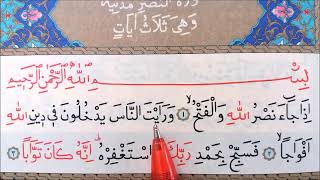 سورة النصر مدنية
وهي ثلاث آيات
بِسْمِ اللهِ الرَّحْمٰنِ الرَّحِيمِ
إِذَا جَاءَ نَصْرُ اللهِ وَالْفَتْحُ ۙ ﴿١﴾ وَرَأَيْتَ النَّاسَ يَدْخُلُونَ فِي دِينِ اللهِ
أَفْوَاجًا ۙ ﴿٢﴾ فَسَبِّحْ بِحَمْدِ رَبِّكَ وَاسْتَغْفِرْهُ ۚ إِنَّهُ كَانَ تَوَّابًا ﴿٣﴾